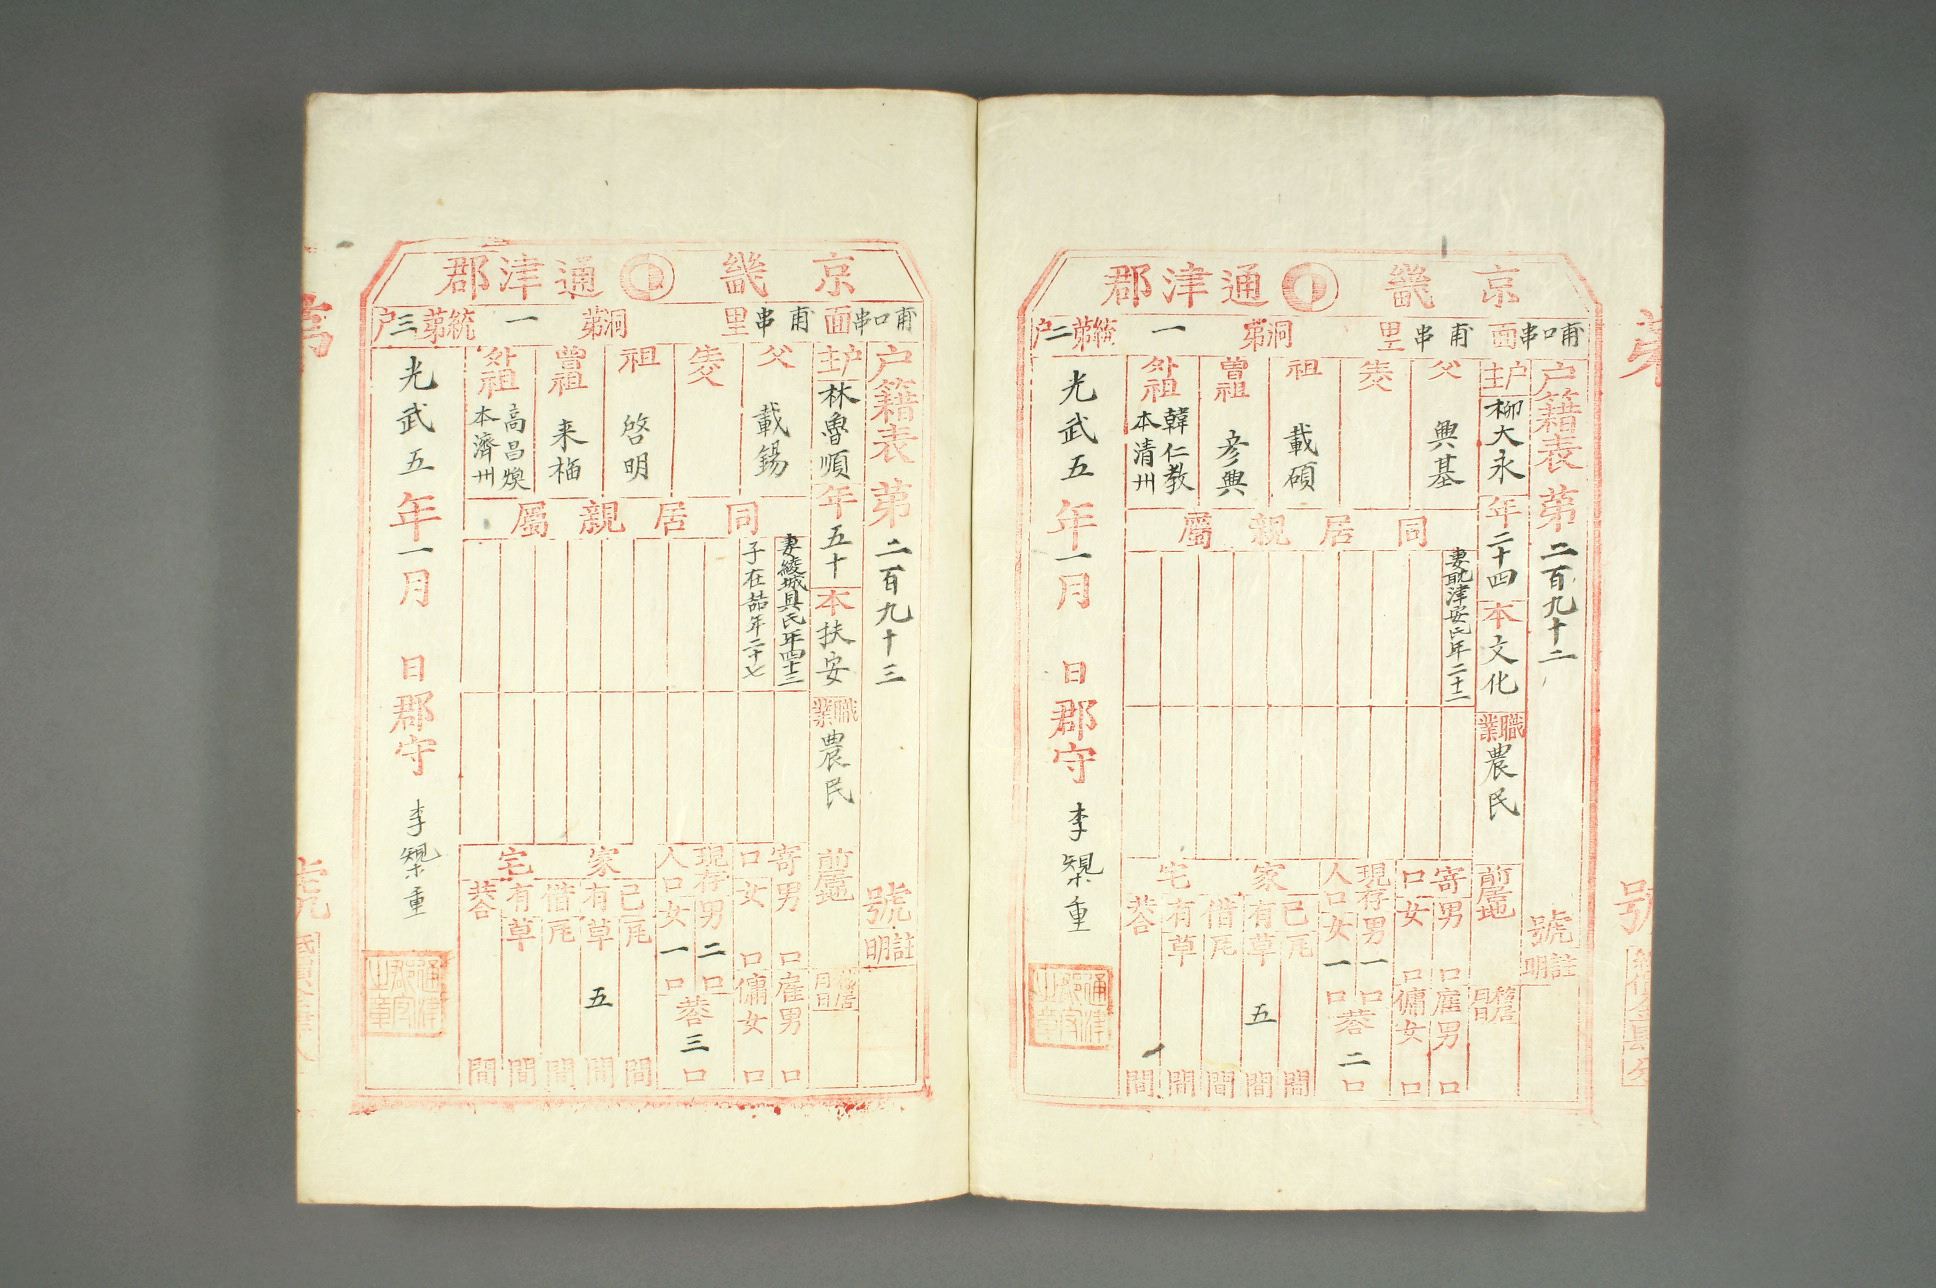 京畿 通津郡
甫口串面 甫串里 洞第一統第二户
户籍表第二百九十二號
註明
户主柳大永年二十四本文化職業農民
前居地
移居月日
父 興基
生父
祖 載碩
曾祖 彦興
外祖 韓仁教 本清州
同居親屬
妻耽津安氏年二十二
寄口 男 口 女 口
雇傭 男 口 女 口
現存人口 男一口 女一口 共二口
家宅
己有 瓦 間 草五間
借有 瓦 間 草 間
共合 間
光武五年一月 日 郡守 李 重
通津郡守之章
京畿 通津郡
甫口串面 甫串里 洞第一統第三户
户籍表第二百九十三號
註明
户主林魯順年五十本扶安職業農民
前居地
移居月日
父 載錫
生父
祖 啓明
曾祖 来栢
外祖 高昌煥 本濟州
同居親屬
妻綾城具氏年四十三
子在喆年二十七
寄口 男 口 女 口
雇傭 男 口 女 口
現存人口 男二口 女一口 共三口
家宅
己有 瓦 間 草五間
借有 瓦 間 草 間
共合 間
光武五年一月 日 郡守 李 重
通津郡守之章